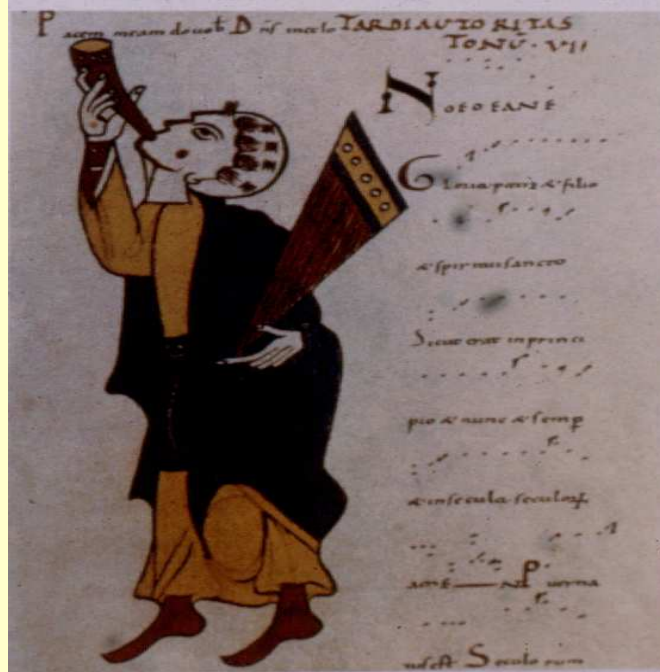 Pacem meam do vob Dns in celo TARDI AUTORITAS
TONŪ · VII
NOEOEANE
Gloria patri & filio
& spirituisancto
Sicut erat in princi
pio & nunc & semp
& in secula seculoꝝ
amē — N Puer na
tus est Seculorum